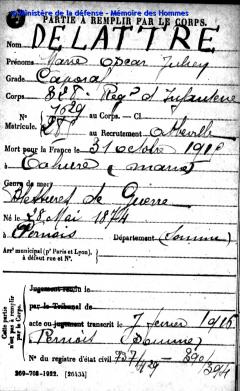 Ministère de la défense - Mémoire des Hommes
PARTIE À REMPLIR PAR LE CORPS.
Nom DELATTRE
Prénoms Marie Oscar
Grade Caporal
Corps 328e Regt d'Infanterie
N° 7529 au Corps. — Cl.
Matricule. au Recrutement Abbeville
Mort pour la France le 31 octobre 1915
à Tahure (marne)
Genre de mort
Blessures de Guerre
Né le 28 Mai 1874
à Pernois Département (Somme)
Arrt municipal (pr Paris et Lyon),
à défaut rue et N°.
Cette partie
n'est pas à remplir
par le Corps.
Jugement rendu le
par le Tribunal de
acte ou jugement transcrit le 7 février 1916
Pernois (Somme)
N° du registre d'état civil
269-708-1922. [26434]